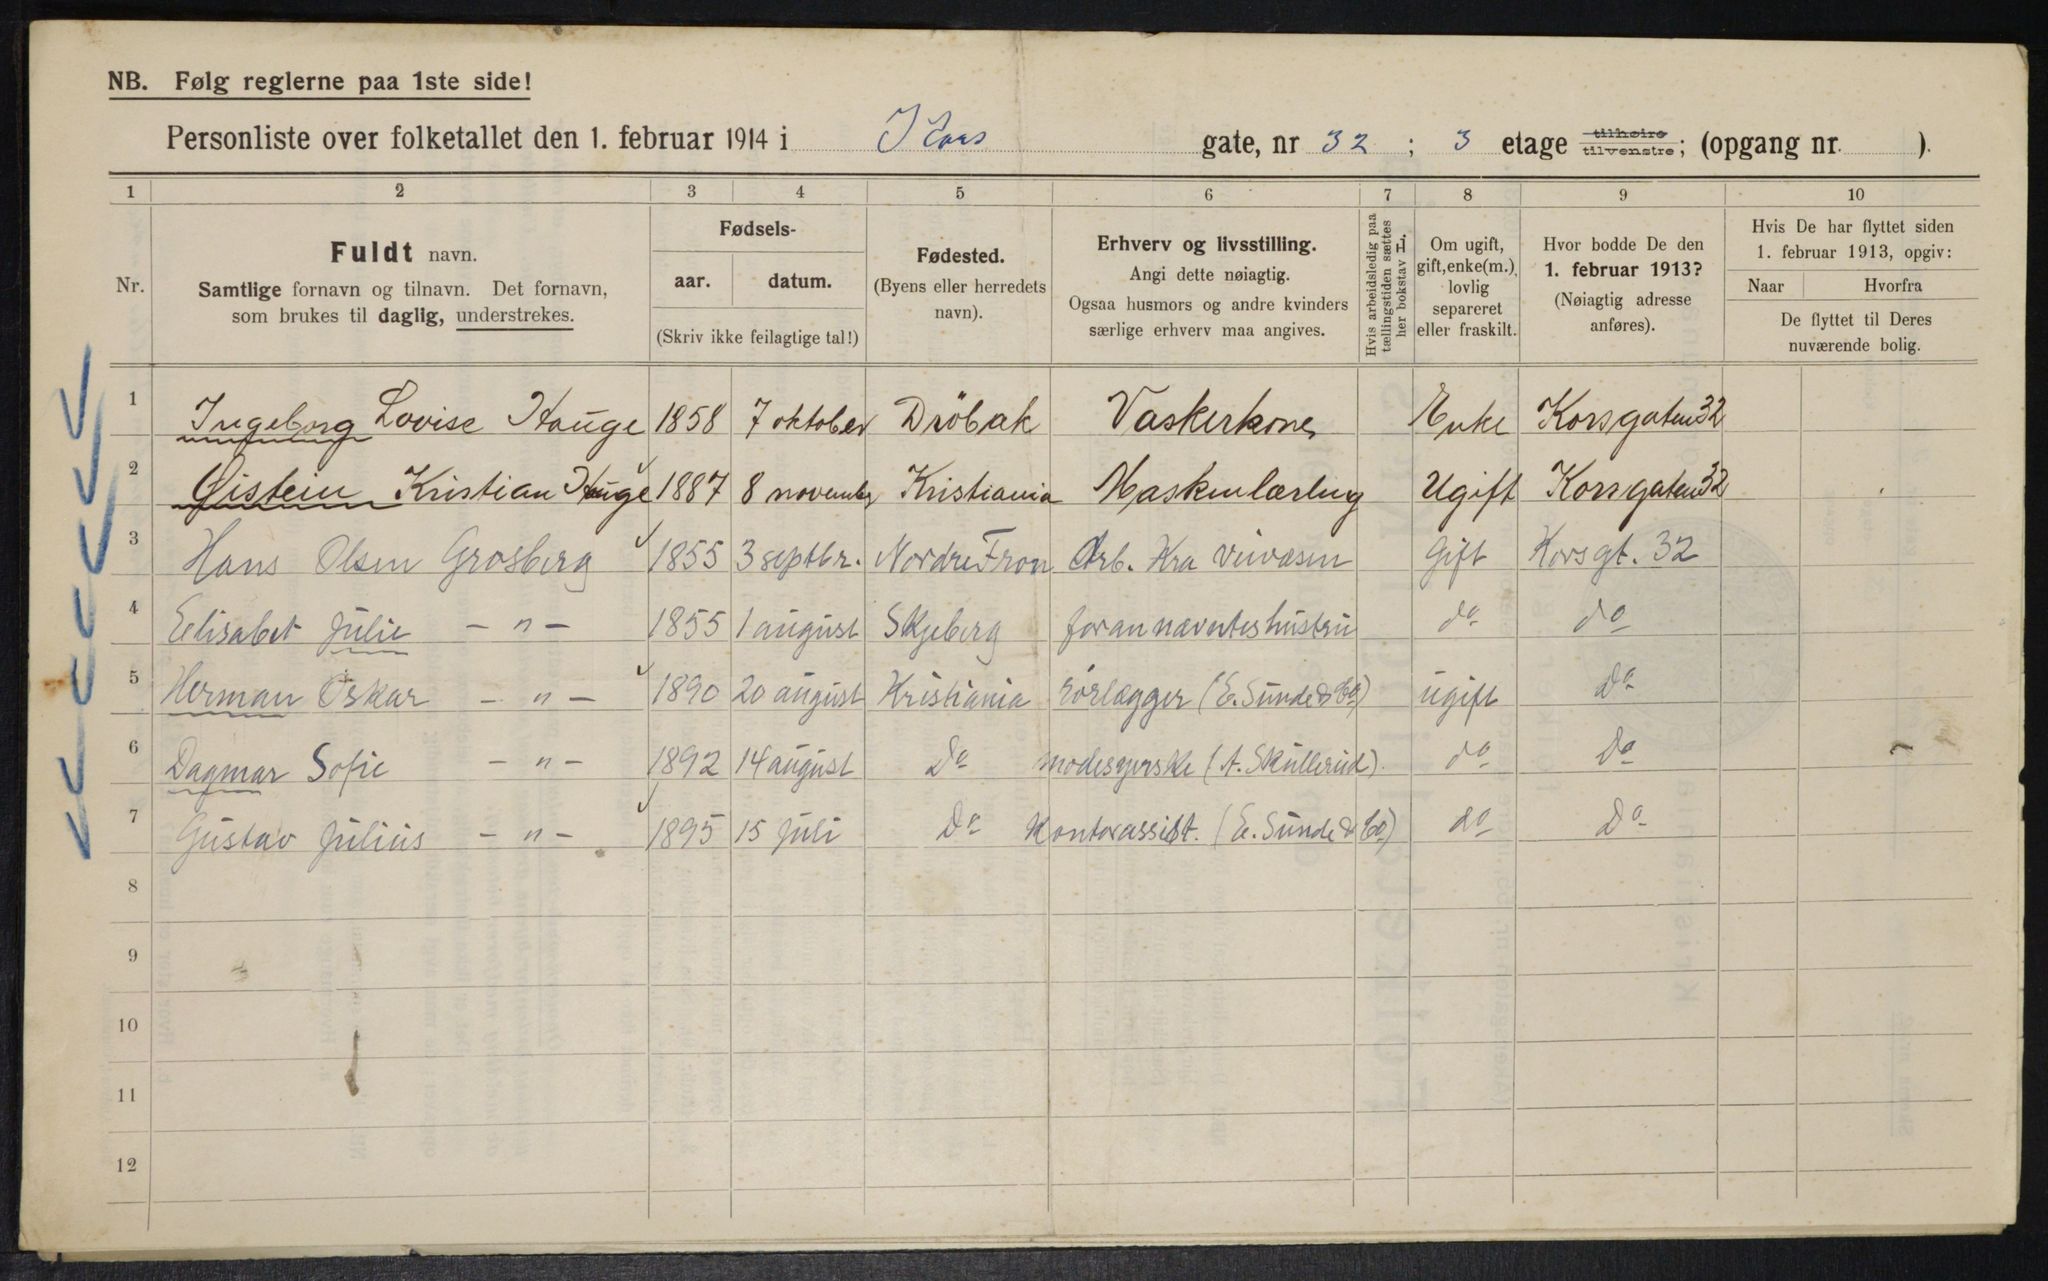 NB. Følg reglerne paa 1ste side!
Personliste over folketallet den 1. februar 1914 i Kors gate, nr 32 ; 3 etage tilhøire tilvenstre; (opgang nr. ).
1 2 3 4 5 6 7 8 9 10
Nr.
Fuldt navn.
Samtlige fornavn og tilnavn. Det fornavn,
som brukes til daglig, understrekes.
Fødsels-
aar. datum.
(Skriv ikke feilagtige tal!)
Fødested.
(Byens eller herredets
navn).
Erhverv og livsstilling.
Angi dette nøiagtig.
Ogsaa husmors og andre kvinders
særlige erhverv maa angives.
Hvis arbeidsledig paa
tællingstiden sættes
her bokstav L.
Om ugift,
gift, enke(m.),
lovlig
separeret
eller fraskilt.
Hvor bodde De den
1. februar 1913?
(Nøiagtig adresse
anføres).
Hvis De har flyttet siden
1. februar 1913, opgiv:
Naar Hvorfra
De flyttet til Deres
nuværende bolig.
1 Ingeborg Lovise Hauge 1858 7 oktober Dröbak Vaskerkone Enke Korsgaten 32
2 Øistein Kristian Hauge 1887 8 november Kristiania Maskinlærling Ugift Korsgaten 32
3 Hans Olsen Grosberg 1855 3 septbr. Nordre Fron Arb. Kra veivæsen Gift Korsgt. 32
4 Elisabet Julie — " — 1855 1 august Skjeberg forannævntes hustru do do
5 Herman Oskar — " — 1890 20 august Kristiania rörlægger (E. Sunde & Co) ugift Do
6 Dagmar Sofie — " — 1892 14 august Do modesyerske (A. Skullerud). do Do
7 Gustav Julius — " — 1895 15 juli Do Kontorassist. (E. Sunde & Co) do Do
8
9
10
11
12